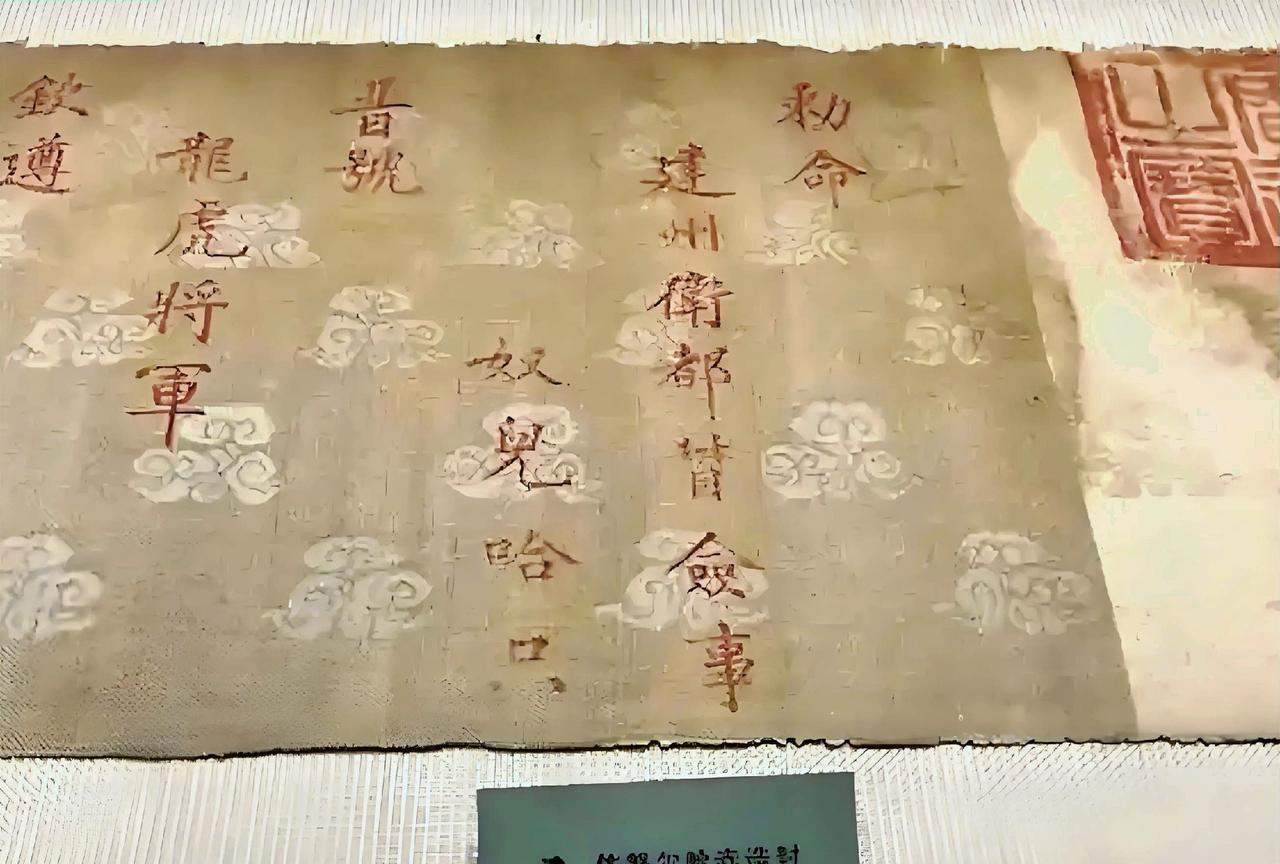 勅命
建州衛都督僉事
奴兒哈口
昔號
龍虎將軍
欽遵